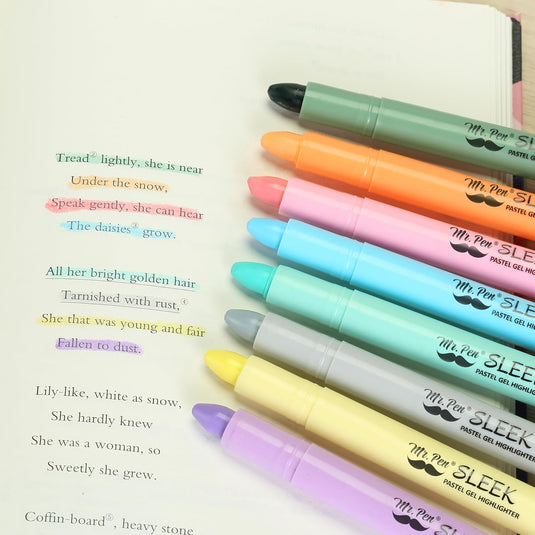 Tread② lightly, she is near
Under the snow,
Speak gently, she can hear
The daisies③ grow.
All her bright golden hair
Tarnished with rust,④
She that was young and fair
Fallen to dust.
Lily-like, white as snow,
She hardly knew
She was a woman, so
Sweetly she grew.
Coffin-board⑤, heavy stone
Mr. Pen® SLEEK
PASTEL GEL HIGHLIGHTER
Mr. Pen® SLEEK
PASTEL GEL HIGHLIGHTER
Mr. Pen® SLEEK
PASTEL GEL HIGHL
Mr. Pen® SLEEK
PASTEL GEL HIGHL
Mr. Pen® SLEEK
PASTEL GEL HIGHLIG
Mr. Pen® SLEEK
PASTEL GEL HIGHLIGHT
Mr. Pen® SLEEK
PASTEL GEL HIGHLIGHTER
Mr. Pen® SLEEK
PASTEL GEL HIGHLIGHTER